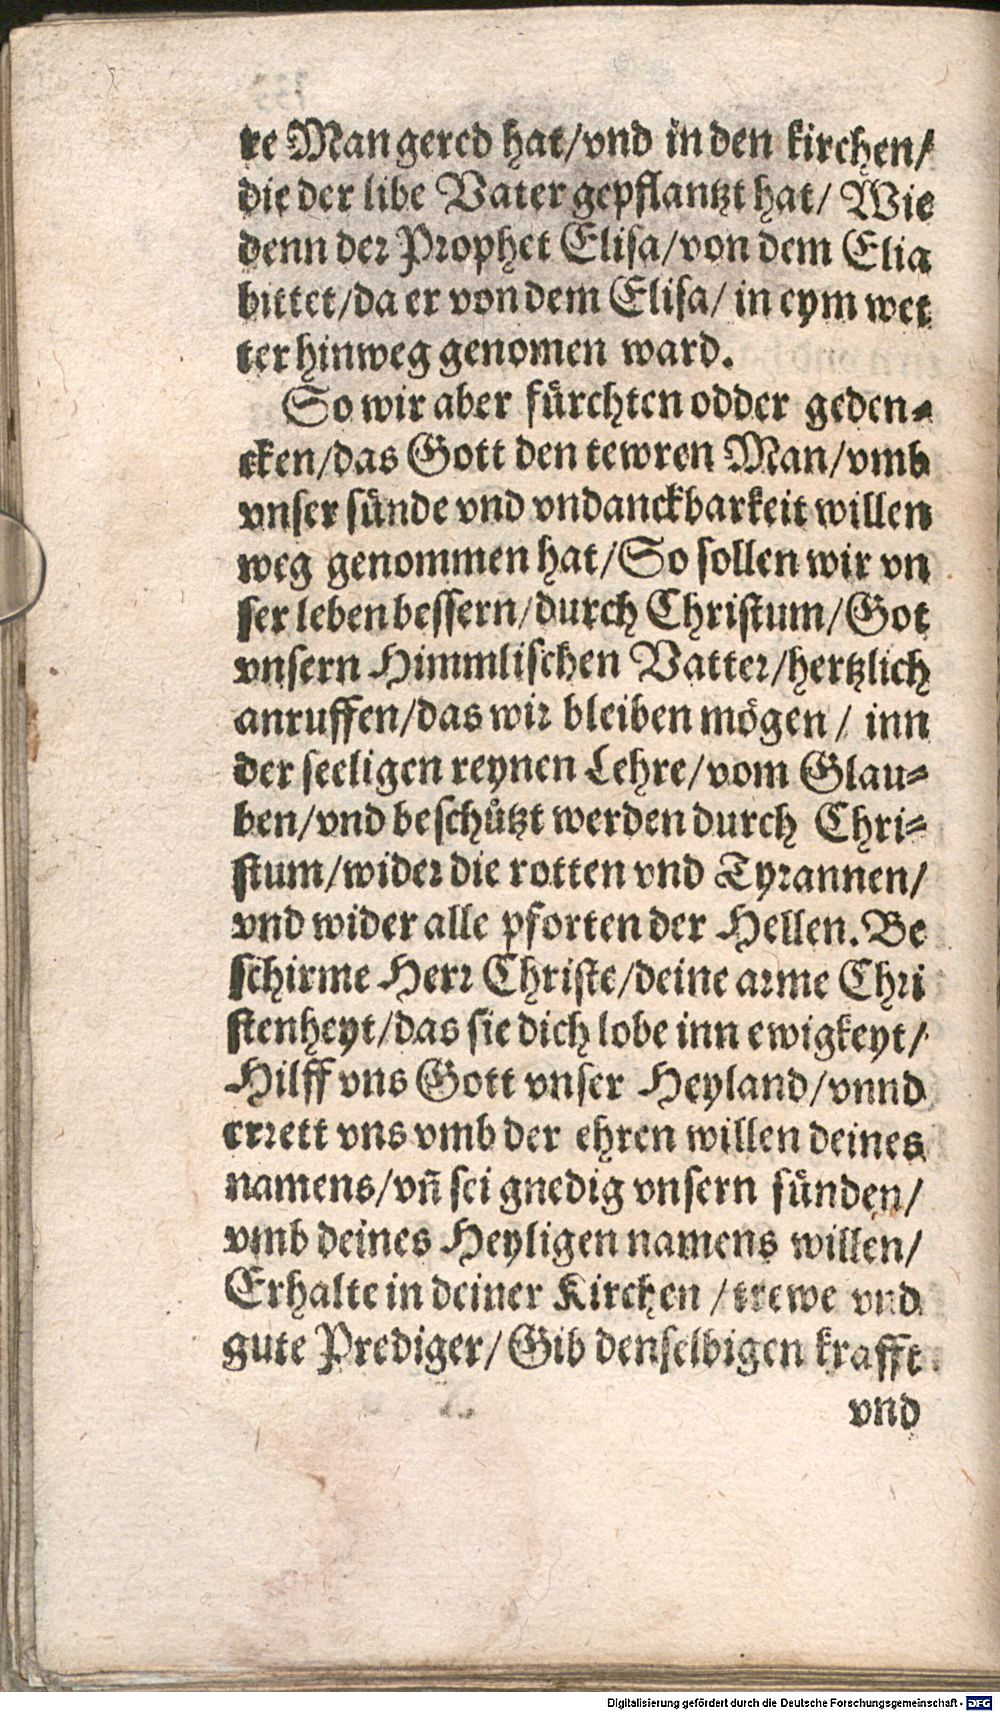 re Man gered hat/vnd in den kirchen/
die der libe Vater gepflantzt hat/ Wie
denn der Prophet Elisa/von dem Elia
bittet/da er von dem Elisa/ in eym wet
ter hinweg genomen ward.
So wir aber fürchten odder geden-
cken/das Gott den tewren Man/vmb
vnser sünde vnd vndanckbarkeit willen
weg genommen hat/So sollen wir vn
ser leben bessern/durch Christum/Got
vnsern Himmlischen Vatter/hertzlich
anruffen/das wir bleiben mögen/ inn
der seeligen reynen Lehre/vom Glau-
ben/vnd beschützt werden durch Chri-
stum/wider die rotten vnd Tyrannen/
vnd wider alle pforten der Hellen. Be
schirme Herr Christe/deine arme Chri
stenheyt/das sie dich lobe inn ewigkeyt/
Hilff vns Gott vnser Heyland/vnnd
errett vns vmb der ehren willen deines
namens/vñ sei gnedig vnsern sünden/
vmb deines Heyligen namens willen/
Erhalte in deiner Kirchen/trewe vnd
gute Prediger/Gib denselbigen krafft
vnd
Digitalisierung gefördert durch die Deutsche Forschungsgemeinschaft - DFG